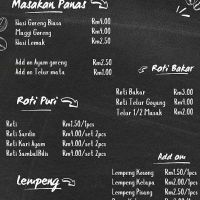 Masakan Panas
Nasi Goreng Biasa Rm4.00
Maggi Goreng Rm4.00
Nasi Lemak Rm2.50
Add on Ayam goreng Rm2.50
Add on Telur mata Rm1.00
Roti Puri
Roti Rm1.50/1pcs
Roti Sardin Rm4.00/set 2pcs
Roti Kari Ayam Rm4.00/set 2pcs
Roti SambalBilis Rm4.00/set 2pcs
Lempeng
Roti Bakar
Roti Bakar Rm3.00
Roti Telur Goyang Rm4.00
Telur 1/2 Masak Rm2.00
Add on
Lempeng Kosong Rm1.50/1pcs
Lempeng Kelapa Rm2.00/1pcs
Lempeng Pisang Rm2.50/1pcs